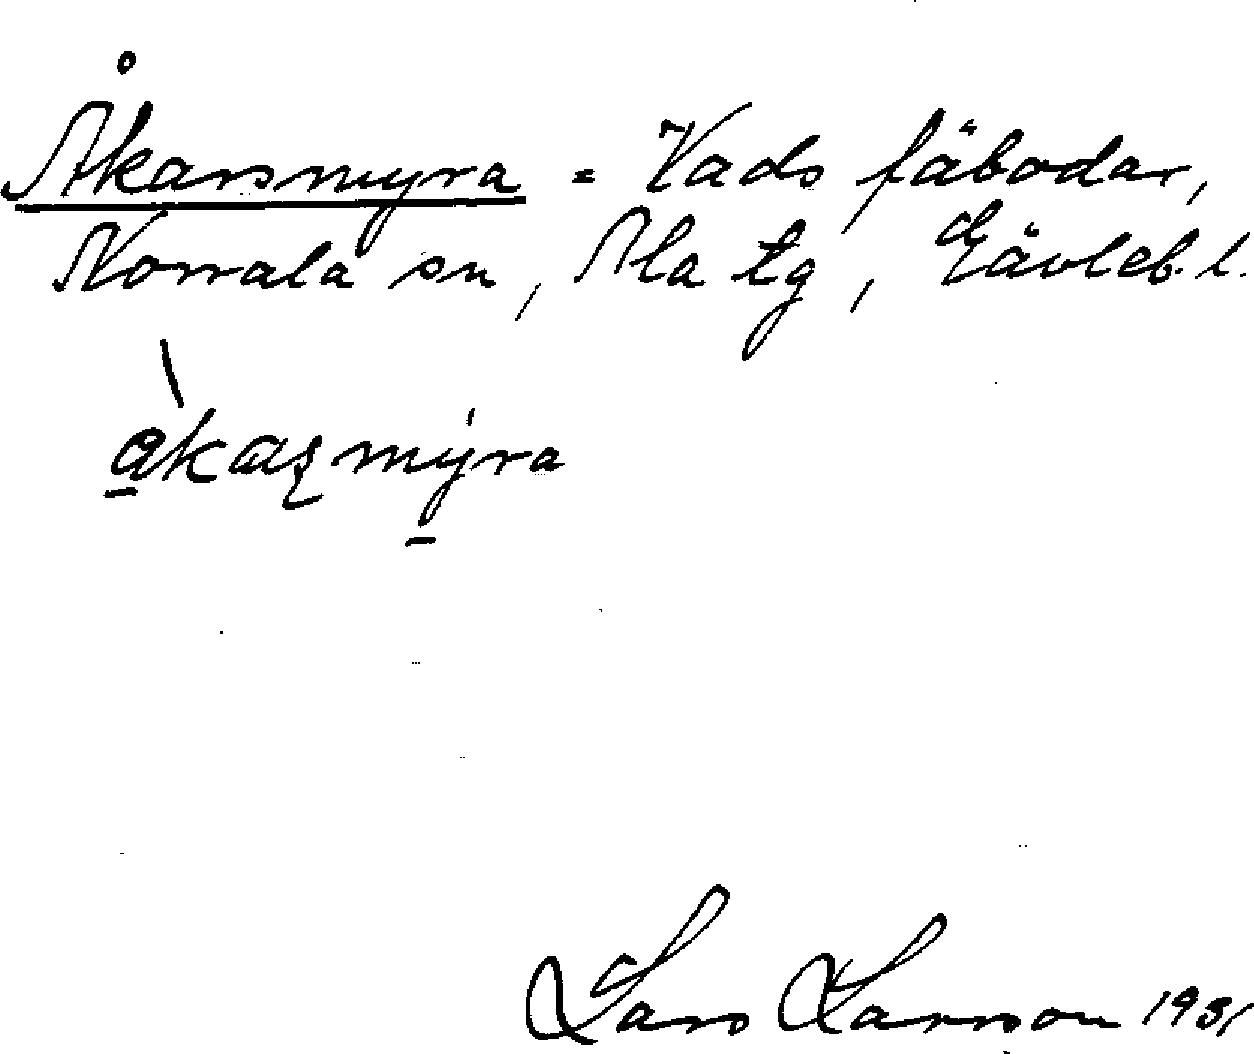 Åkarsmyra = Vads fäbodar,
Norrala sn, Ala tg, Gävleb. l.
åkaʂmy̱ra
Lars Larsson 1931